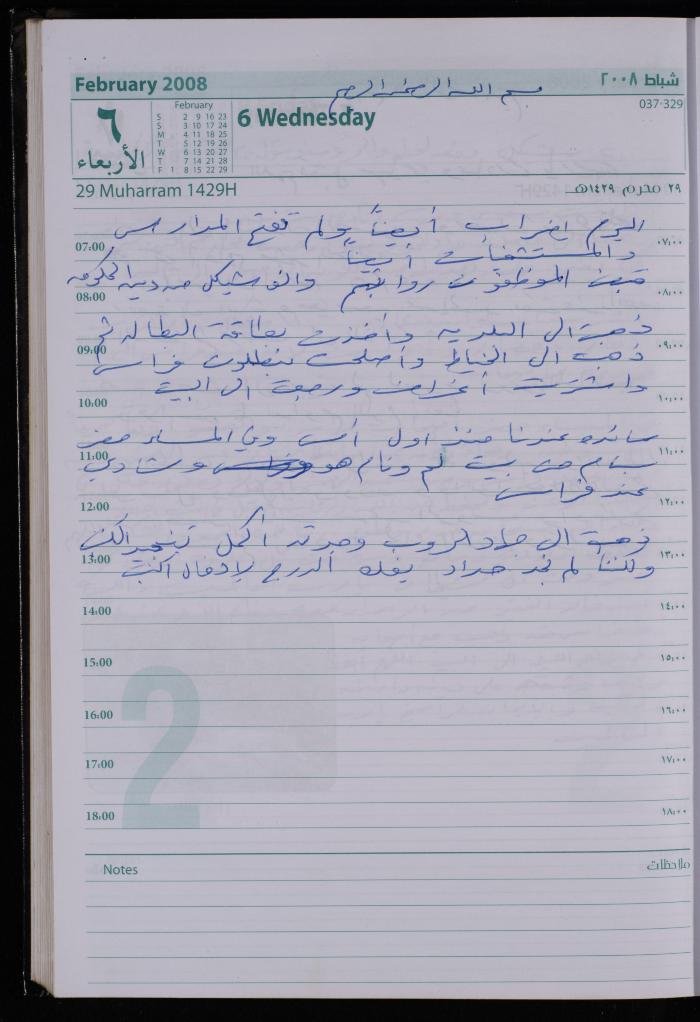 February 2008
شباط ٢٠٠٨
بسم الله الرحمن الرحيم
037-329
٦
الأربعاء
February
S 2 9 16 23
S 3 10 17 24
M 4 11 18 25
T 5 12 19 26
W 6 13 20 27
T 7 14 21 28
F 1 8 15 22 29
6 Wednesday
29 Muharram 1429H
٢٩ محرم ١٤٢٩هـ
اليوم إضراب أيضاً ولم تفتح المدارس
07:00 ٠٧:٠٠
والمستشفيات أيضاً
قبض الموظفون رواتبهم والفـ شيكل من دين الحكومة
08:00 ٠٨:٠٠
ذهبت الى البلدية وأخذت بطاقة البطالة ثم
09:00 ٠٩:٠٠
ذهبت الى الخياط وأصلحت بنطلون فراس
واشتريت أغراض ورجعت الى البيت
10:00 ١٠:٠٠
سائده عندنا منذ اول أمس وفي المساء حضر
11:00 ١١:٠٠
بسام من بيت لحم ونام هو وشادي
عند فراس
12:00 ١٢:٠٠
ذهبت الى جلاد الروب وجدته أكمل تنجيد الكنب
13:00 ١٣:٠٠
ولكننا لم نجد حداد يفك الدرج لإدخال الكنب
14:00 ١٤:٠٠
15:00 ١٥:٠٠
16:00 ١٦:٠٠
17:00 ١٧:٠٠
18:00 ١٨:٠٠
2
Notes
ملاحظات